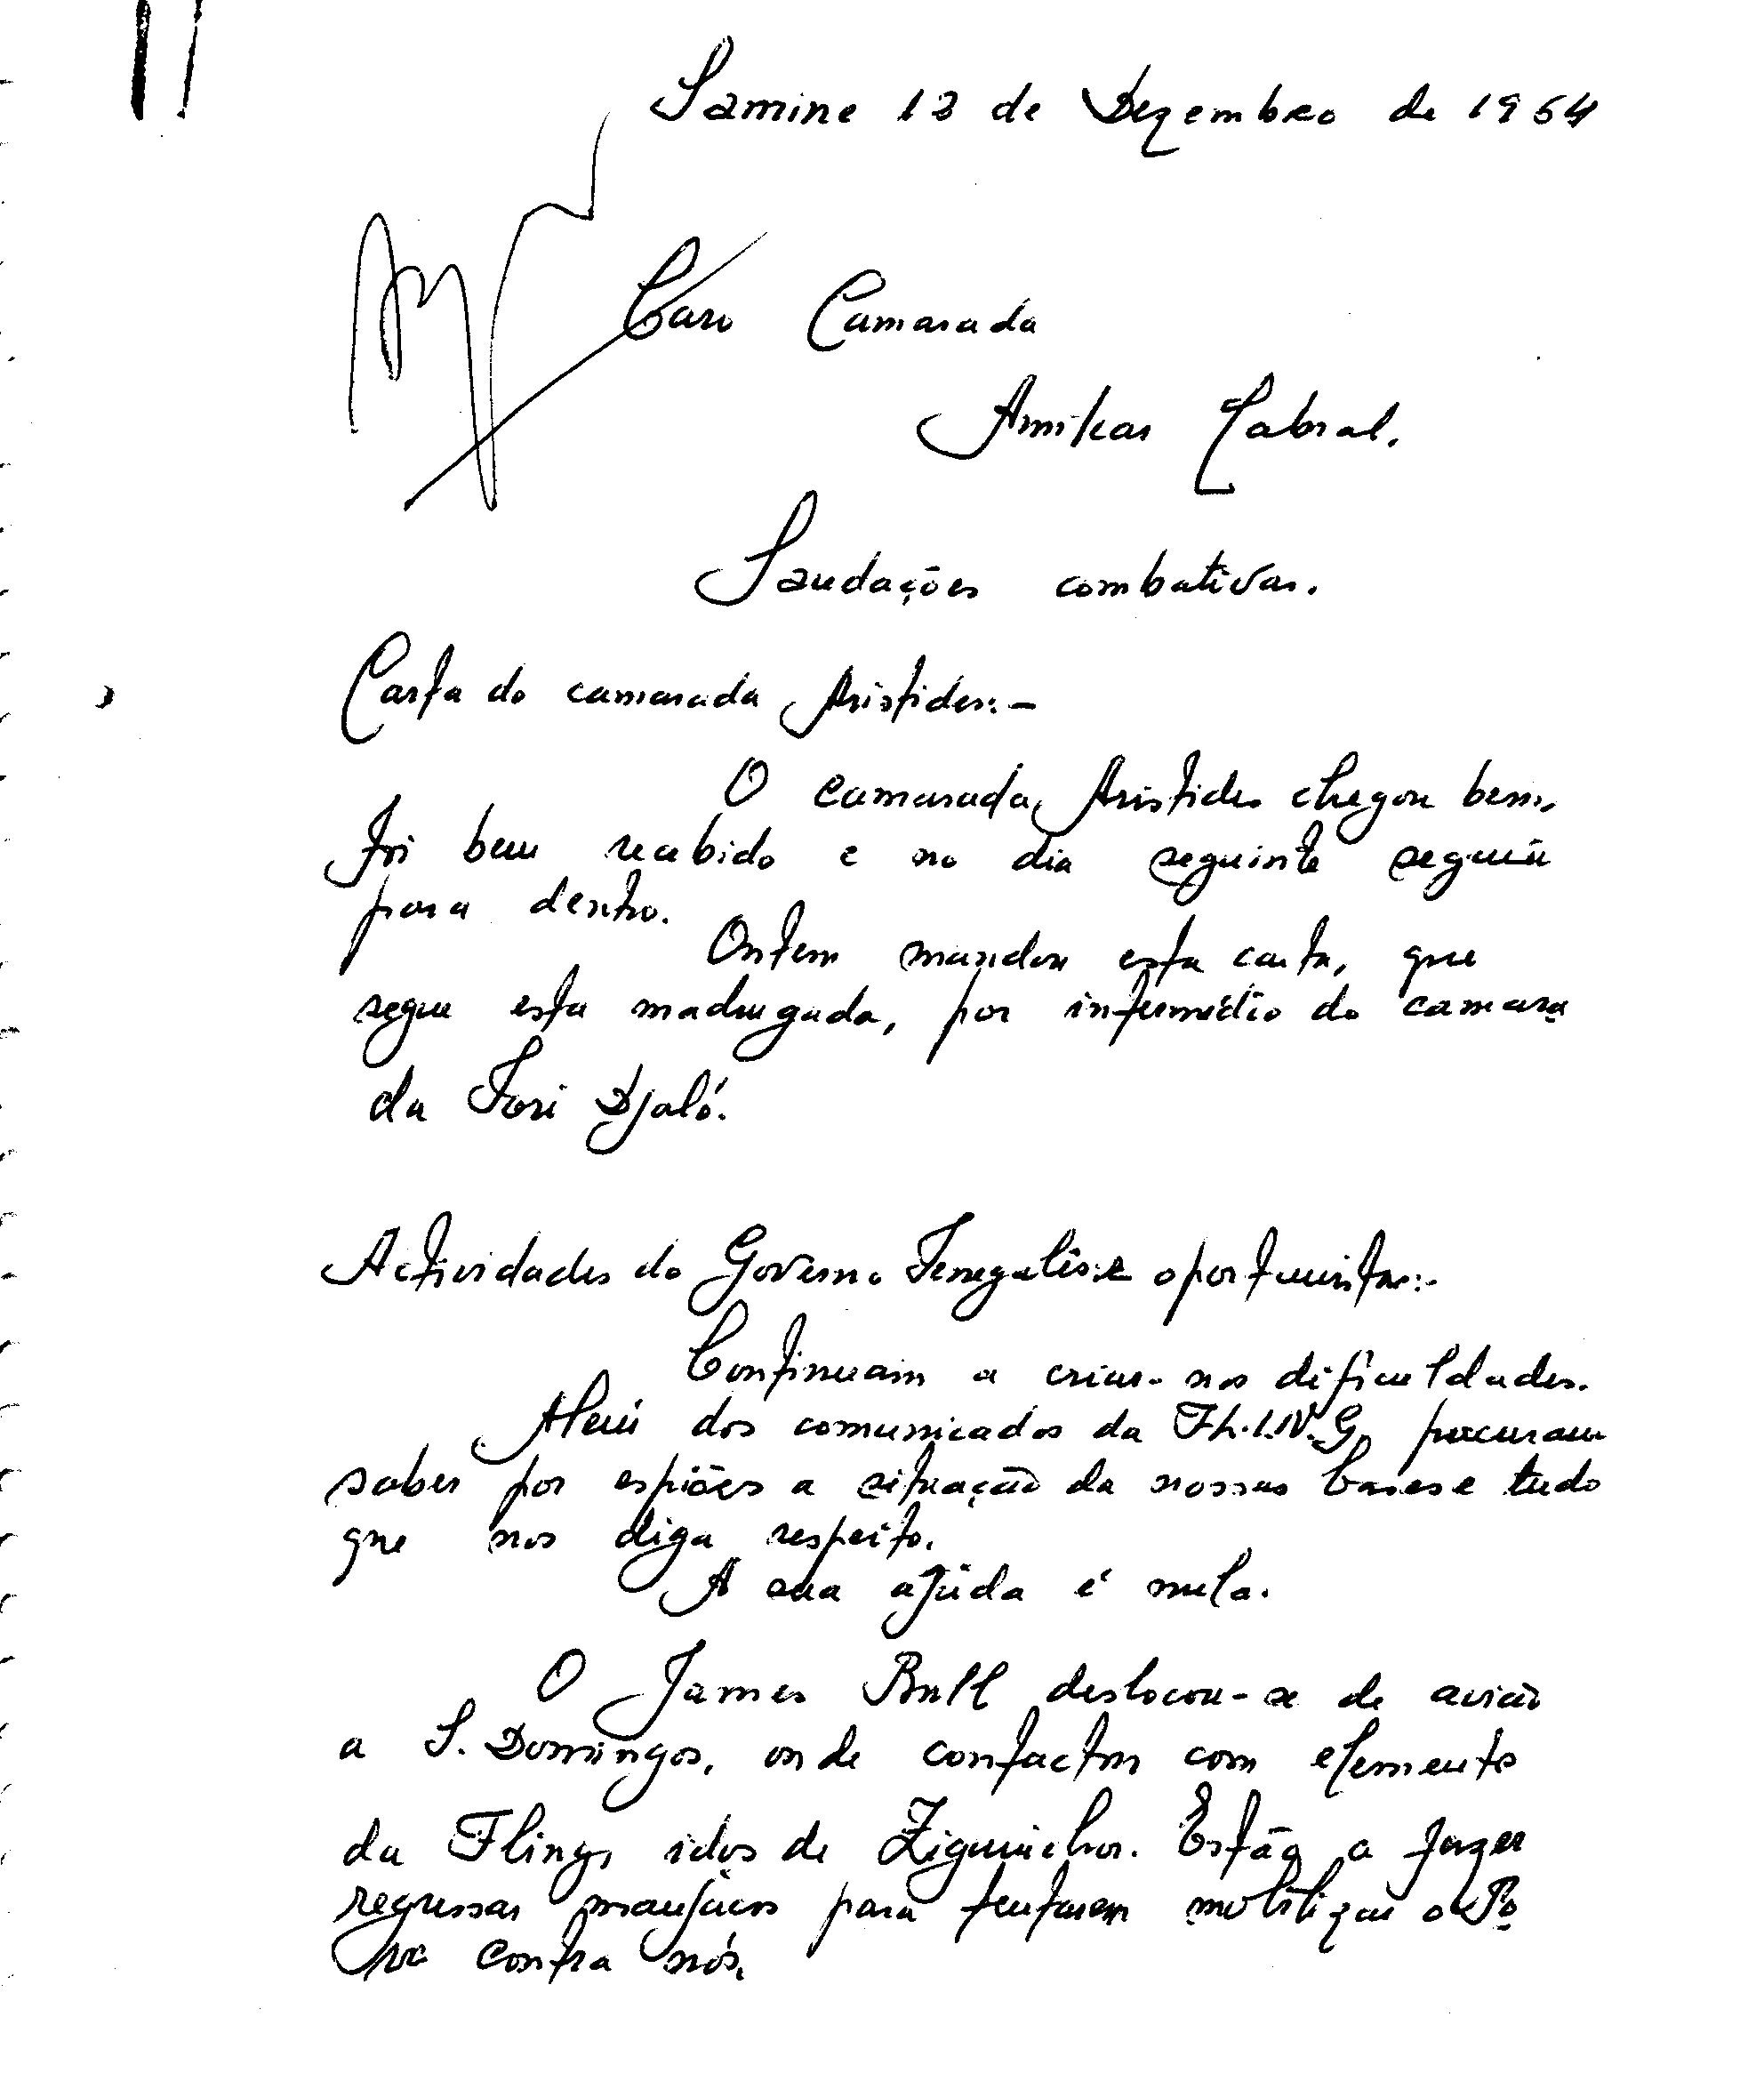 Samine 12 de Dezembro de 1964
Caro Camarada
Amilcar Cabral.
Saudações combativas.
Carta do camarada Aristides:-
O camarada, Aristides chegou bem,
foi bem recebido e no dia seguinte seguiu
para dentro.
Ontem mandou esta carta, que
segue esta madrugada, por intermédio do camara
da Fori Djaló.
Actividades do Governo Senegalês e oportunistas:-
Continuam a criar-nos dificuldades.
Além dos comunicados da F.L.I.N.G, procuram
saber por espiões a situação da nossas bases e tudo
que nos diga respeito.
A sua ajuda é nula.
O James Bull deslocou-se de avião
a S. Domingos, onde contactou com elemento
da Fling, idos de Ziguinchor. Estão a fazer
regressar manjacos para tentarem mobilizar o Po
vo contra nós.